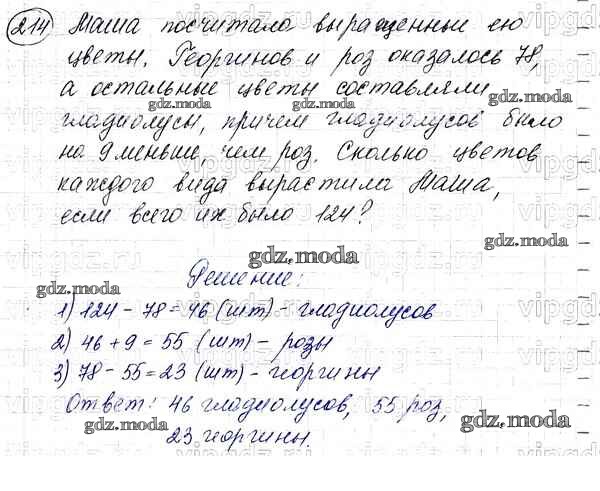 214 Маша посчитала выращенные ею
цветы. Георгинов и роз оказалось 78,
а остальные цветы составляли
гладиолусы, причем гладиолусов было
на 9 меньше, чем роз. Сколько цветов
каждого вида вырастила Маша,
если всего их было 124?
Решение:
1) 124 - 78 = 46 (шт) - гладиолусов
2) 46 + 9 = 55 (шт) - розы
3) 78 - 55 = 23 (шт) - георгины
Ответ: 46 гладиолусов, 55 роз,
23 георгины.
gdz.moda
gdz.moda
gdz.moda
gdz.moda
gdz.moda
gdz.moda
gdz.moda
gdz.moda
gdz.moda